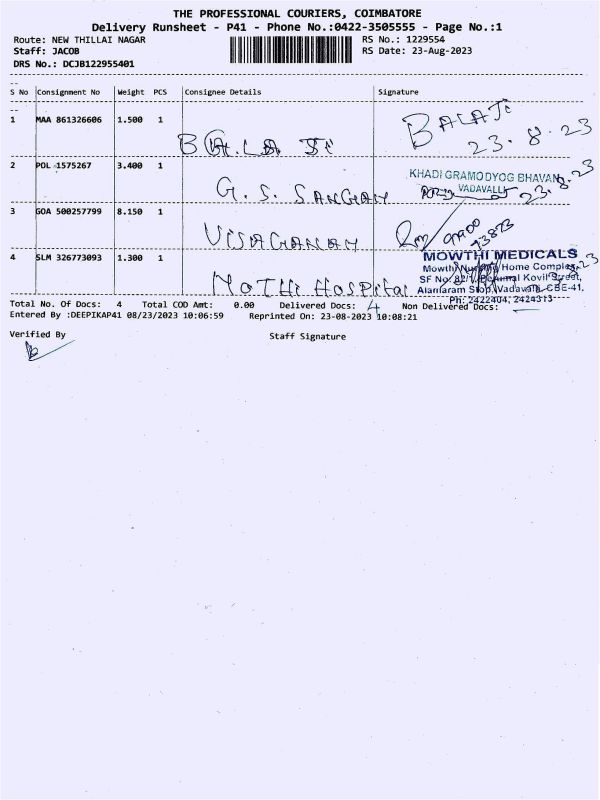 THE PROFESSIONAL COURIERS, COIMBATORE
Delivery Runsheet - P41 - Phone No.:0422-3505555 - Page No.:1
Route: NEW THILLAI NAGAR
RS No.: 1229554
Staff: JACOB
RS Date: 23-Aug-2023
DRS No.: DCJB122955401
S No Consignment No Weight PCS Consignee Details Signature
1 MAA 861326606 1.500 1
BALAJI
BALAJI
23.8.23
2 POL 1575267 3.400 1
G. S. SANGAM
KHADI GRAMODYOG BHAVAN
VADAVALLI
23.8.23
3 GOA 500257799 8.150 1
4 SLM 326773093 1.300 1
MOTHI HOSPITAL
MOWTHI MEDICALS
Mowthi Nursing Home Complex,
SF No. Kovil Street,
Vadavalli, CBE-41.
Ph: 2422404, 2424313
Total No. Of Docs: 4 Total COD Amt: 0.00 Delivered Docs: 4 Non Delivered Docs: —
Entered By :DEEPIKAP41 08/23/2023 10:06:59 Reprinted On: 23-08-2023 10:08:21
Verified By Staff Signature